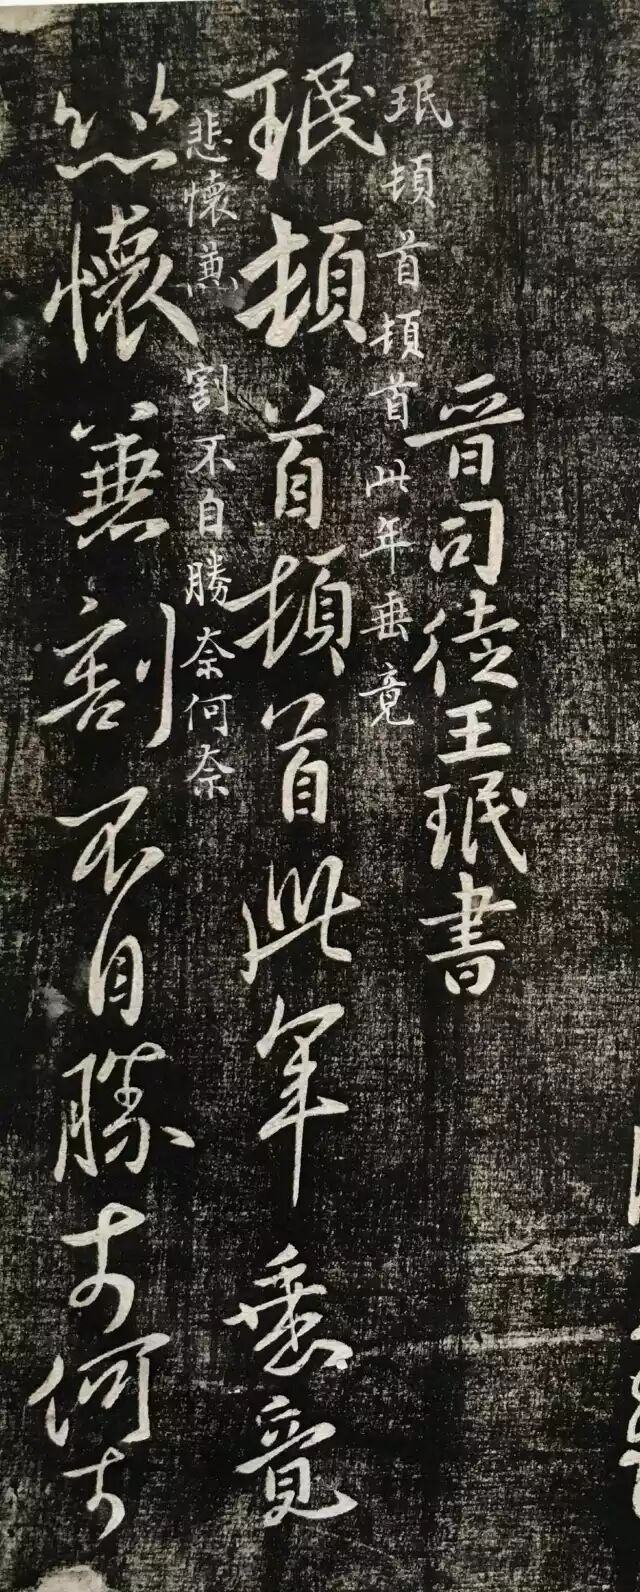 晋司徒王珉書
珉頓首頓首此年垂竟
珉頓首頓首此年垂竟
悲懷兼割不自勝奈何奈
悲懷兼割不自勝奈何奈